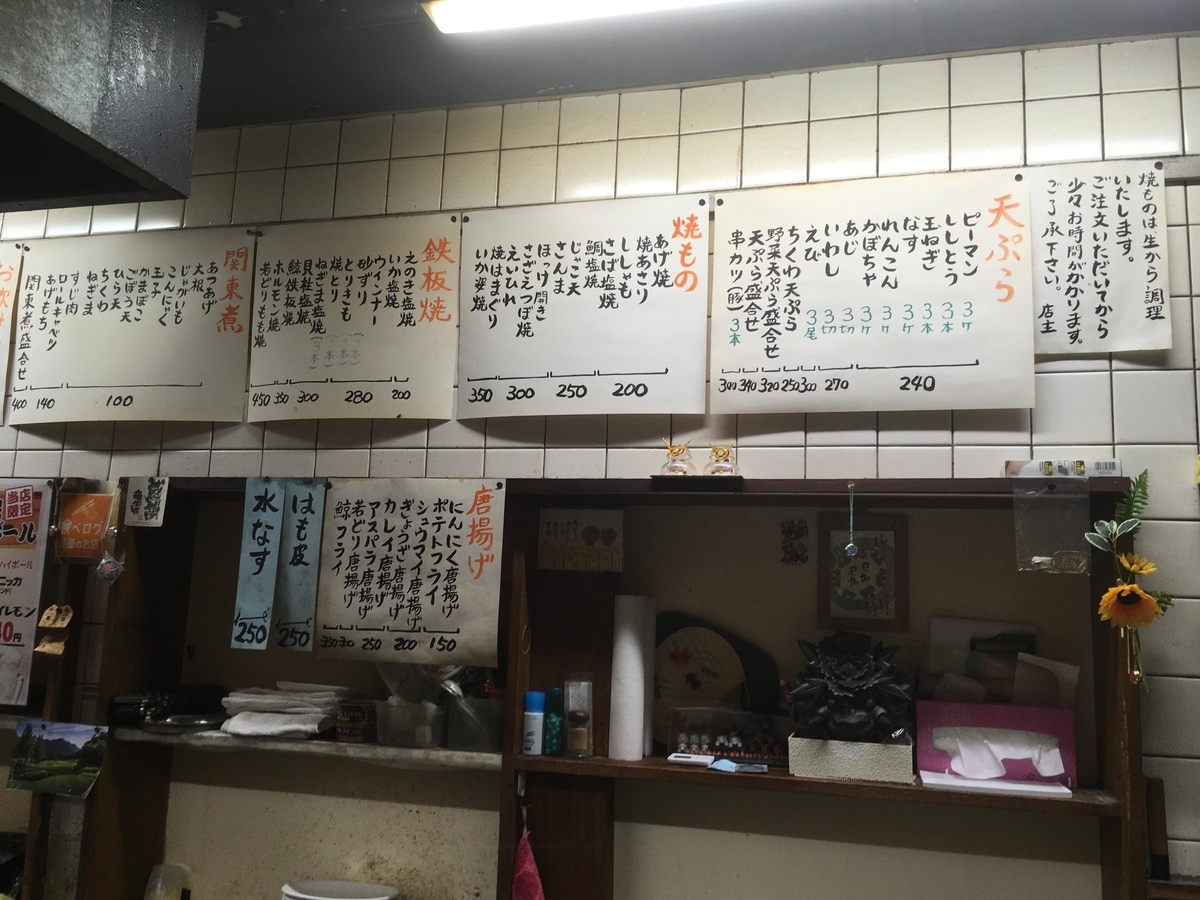 焼ものは生から調理
いたします。
ご注文いただいてから
少々お時間がかかります。
ご了承下さい。 店主
天ぷら
ピーマン 3ヶ
ししとう 3本
玉ねぎ 3本
なす 3ヶ
れんこん 3ヶ
かぼちゃ 3切
あじ 3切
いわし 3尾
えび
ちくわ天ぷら
野菜天ぷら盛合せ
天ぷら盛合せ
串カツ(豚) 3本
240
270
300
250
320
340
300
焼もの
あげ焼
焼あさり
ししゃも
さば塩焼
鯛塩焼
じゃこ天
さんま
ほっけ開き
さざえつぼ焼
えいひれ
焼はまぐり
いか姿焼
200
250
300
350
鉄板焼
えのき塩焼
いか塩焼
ウインナー
砂ずり
とりきも
焼とり
ねぎま塩焼
貝柱塩焼
鯨鉄板焼
ホルモン焼
若どりもも焼
200
280
300
350
450
関東煮
あつあげ
大根
じゃがいも
こんにゃく
玉子
かまぼこ
ごぼう天
ひら天
ちくわ
ねぎま
すじ肉
ロールキャベツ
あげもち
関東煮盛合せ
100
140
400
唐揚げ
にんにく唐揚げ
ポテトフライ
シュウマイ唐揚げ
ぎょうざ唐揚げ
カレイ唐揚げ
アスパラ唐揚げ
若どり唐揚げ
鯨フライ
150
200
250
300
350
はも皮
250
水なす
250
当店
限定
食べログ